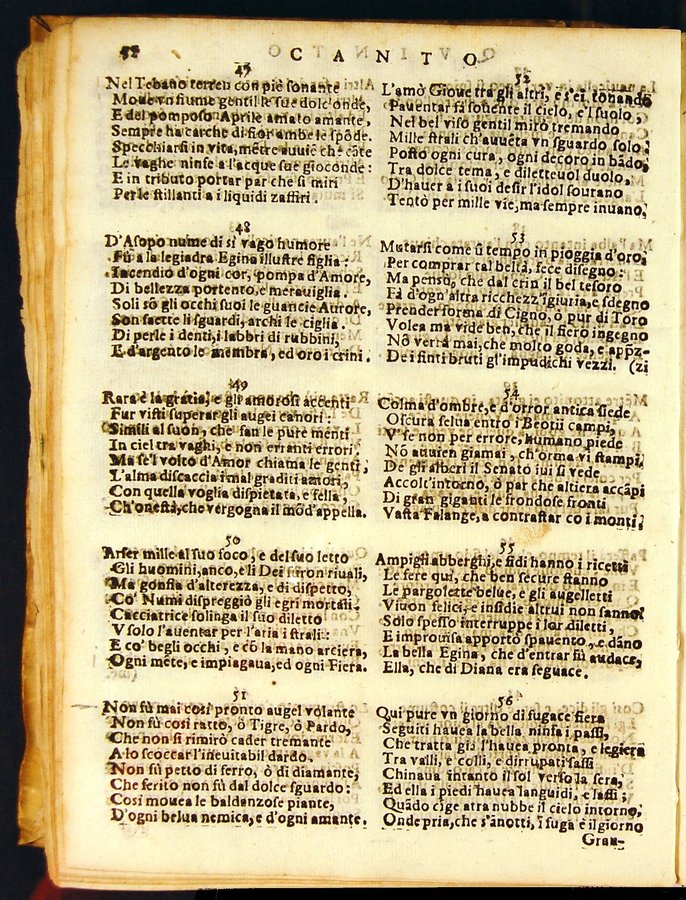 52 CANTO
47
Nel Tebano terren con piè sonante
Moue vn fiume gentil le sue dolc'onde,
E del pomposo Aprile amato amante,
Sempre hà carche di fior ambe le spõde.
Specchiarsi in vita, mẽtre auuiẽ ch'
Le vaghe ninfe a l'acque sue gioconde:
E in tributo portar par che si miri
Perle stillanti a i liquidi zaffiri.
48
D'Asopo nume di sì vago humore
Fù a la legiadra Egina illustre figlia:
Incendio d'ogni cor, pompa d'Amore,
Di bellezza portento, e merauiglia.
Soli sõ gli occhi suoi le guancie Aurore,
Son saette li sguardi, archi le ciglia.
Di perle i denti, i labbri di rubbini,
E d'argento le membra, ed oro i crini.
49
Rara è la gratia, e gli amorosi accenti
Fur visti superar gli augei canori:
Simili al suon, che fan le pure menti
In ciel tra vaghi, e non erranti errori.
Ma se'l volto d'Amor chiama le genti,
L'alma discaccia i mal graditi amori,
Con quella voglia dispietata, e fella,
Ch'onestà, che vergogna il mõd'appella.
50
Arser mille al suo foco, e del suo letto
Gli huomini, anco, e li Dei furon riuali,
Ma gonfia d'alterezza, e di dispetto,
Co' Numi dispreggiò gli egri mortali.
Cacciatrice solinga il suo diletto
V solo l'auentar per l'aria i strali:
E co' begli occhi, e cõ la mano arciera,
Ogni mẽte, e impiagaua, ed ogni Fiera.
51
Non fù mai così pronto augel volante
Non fù così ratto, ò Tigre, ò Pardo,
Che non si rimirò cader tremante
A lo scoccar l'ineuitabil dardo.
Non fù petto di ferro, ò di diamante,
Che ferito non fù dal dolce sguardo:
Così mouea le baldanzose piante,
D'ogni belua nemica, e d'ogni amante.
52
L'amò Gioue tra gli altri, e s'ei tonando
Pauentar fà souente il cielo, e'l suolo,
Nel bel viso gentil mirò tremando
Mille strali ch'auuẽta vn sguardo solo;
Posto ogni cura, ogni decoro in bãdo,
Tra dolce tema, e diletteuol duolo,
D'hauer a i suoi desir l'idol sourano
Tentò per mille vie, ma sempre inuano.
53
Mutarsi come sì tempo in pioggia d'oro,
Per comprar tal beltà, fece disegno:
Ma pensò, che dal crin il bel tesoro
Fà d'ogn'altra ricchezz'īgiuria, e sdegno
Prender forma di Cigno, ò pur di Toro
Volea ma vide ben, che il fiero ingegno
Nõ verrà mai, che molto goda, e appz-
De i finti bruti gl'impudichi vezzi. (zi
54
Colma d'ombre, e d'orror antica siede
Oscura selua entro i Beotii campi,
V' se non per errore, humano piede
Nõ auuien giamai, ch'orma vi stampi,
De gli alberi il Senato iui si vede
Accolt'intorno, ò par che altiera accãpi
Di gran giganti le frondose fronti
Vasta Falange, a contrastar co i monti;
55
Ampi gli abberghi, e fidi hanno i ricetti
Le fere qui, che ben secure stanno
Le pargolette belue, e gli augelletti
Viuon felici, e insidie altrui non sanno:
Solo spesso interruppe i lor diletti,
E improuisa apportò spauento, e dãno
La bella Egina, che d'entrar fù audace,
Ella, che di Diana era seguace.
56
Qui pure vn giorno di fugace fiera
Seguiti hauea la bella ninfa i passi,
Che tratta già l'hauea pronta, e legiera
Tra valli, e colli, e dirrupati sassi
Chinaua intanto il sol verso la sera,
Ed ella i piedi hauea languidi, e lassi;
Quãdo cige atra nubbe il cielo intorno,
Onde pria, che s'ānotti, ī fuga è il giorno
Gran-